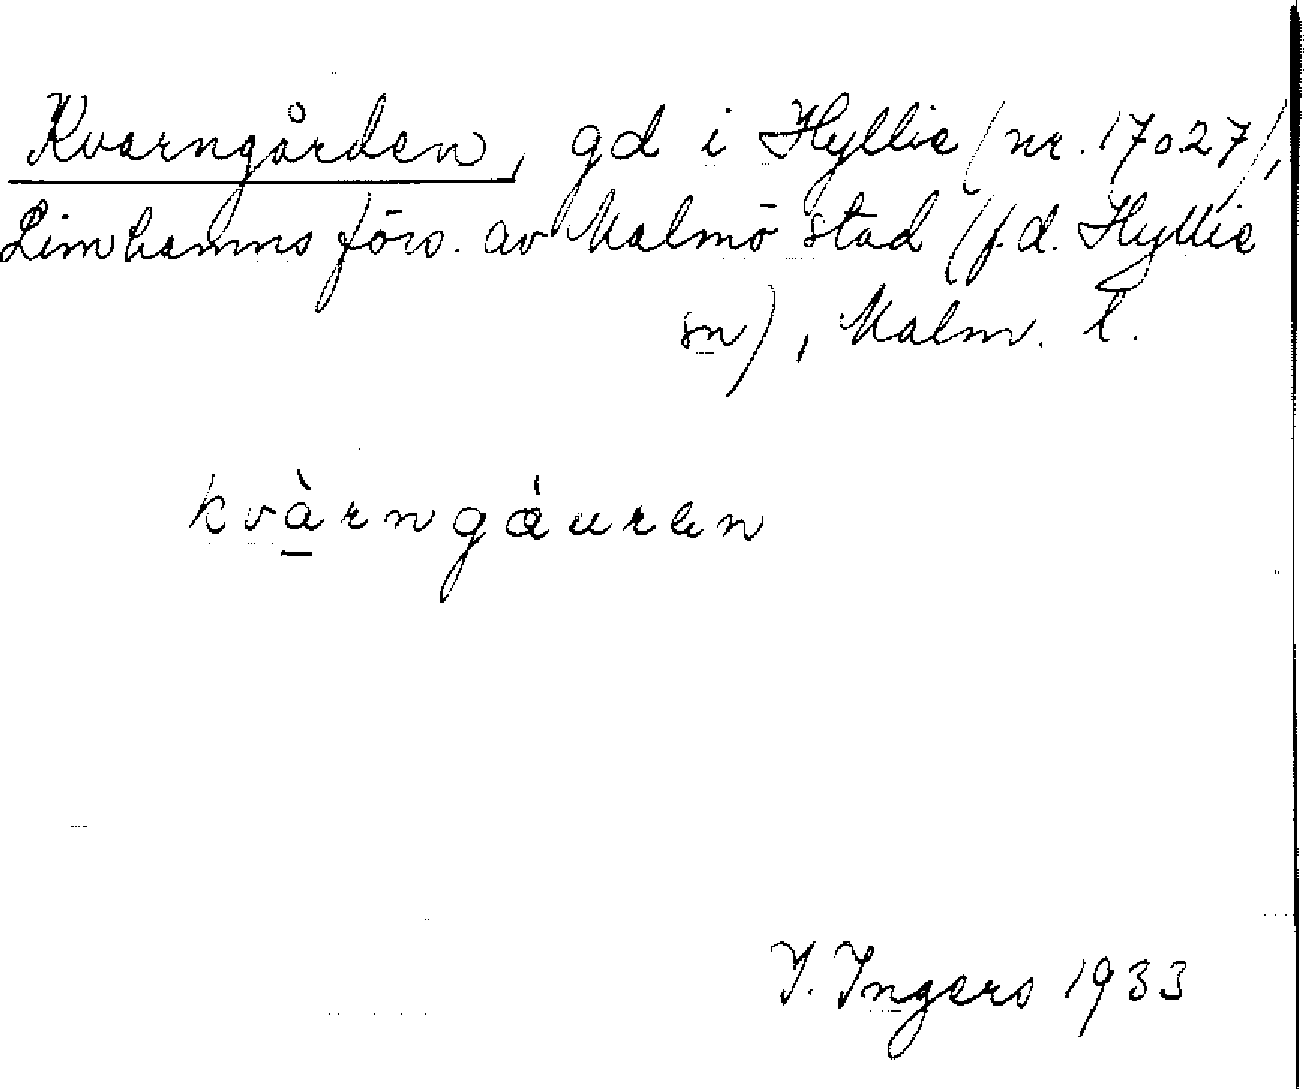 Kvarngården, gd i Hyllie (nr. 17o27),
Limhamns förs. av Malmö stad (f.d. Hyllie
sn), Malm. l.
kvà̱rngáuren
I. Ingers 1933